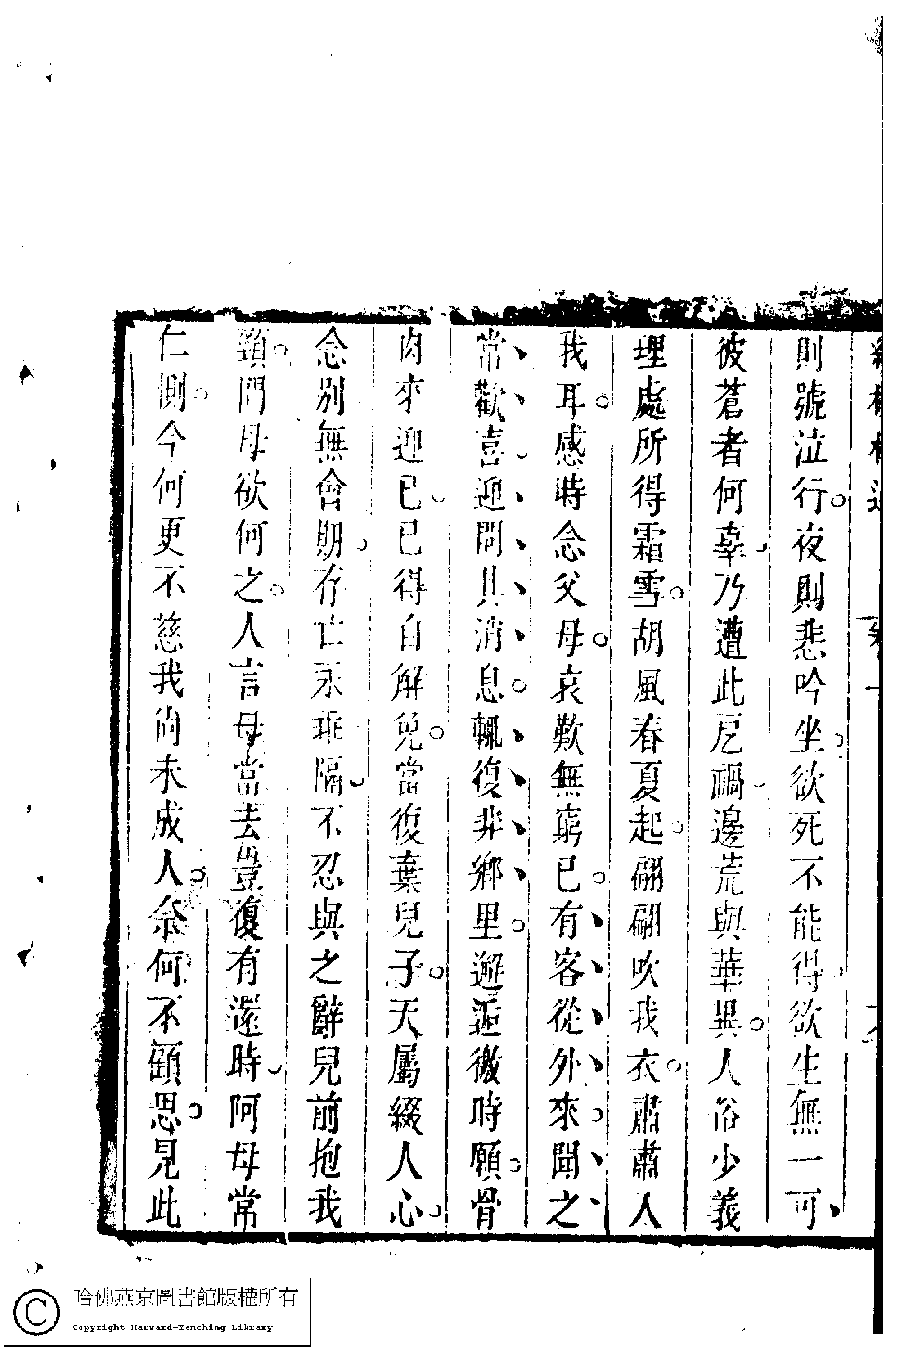 則號泣行夜則悲吟坐欲死不能得欲生無一可
彼蒼者何辜乃遭此戹禍邊荒與華異人俗少義
理處所得霜雪胡風春夏起翩翩吹我衣肅肅人
我耳感時念父母哀歎無窮已有客從外來聞之
常歡喜迎問其消息輒復非鄉里邂逅徼時願骨
肉來迎已已得自解免當復棄兒子天屬綴人心
念別無會期存亡永乖隔不忍與之辭兒前抱我
頸問母欲何之人言母當去豈復有還時阿母常
仁惻今何更不慈我尚未成人柰何不顧思見此
哈佛燕京圖書館版權所有
Copyright Harvard-Yenching Library